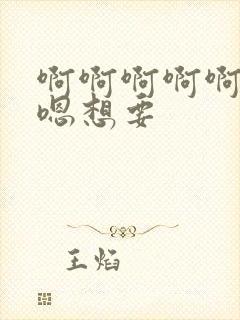 啊啊啊啊啊
嗯想要
王焰